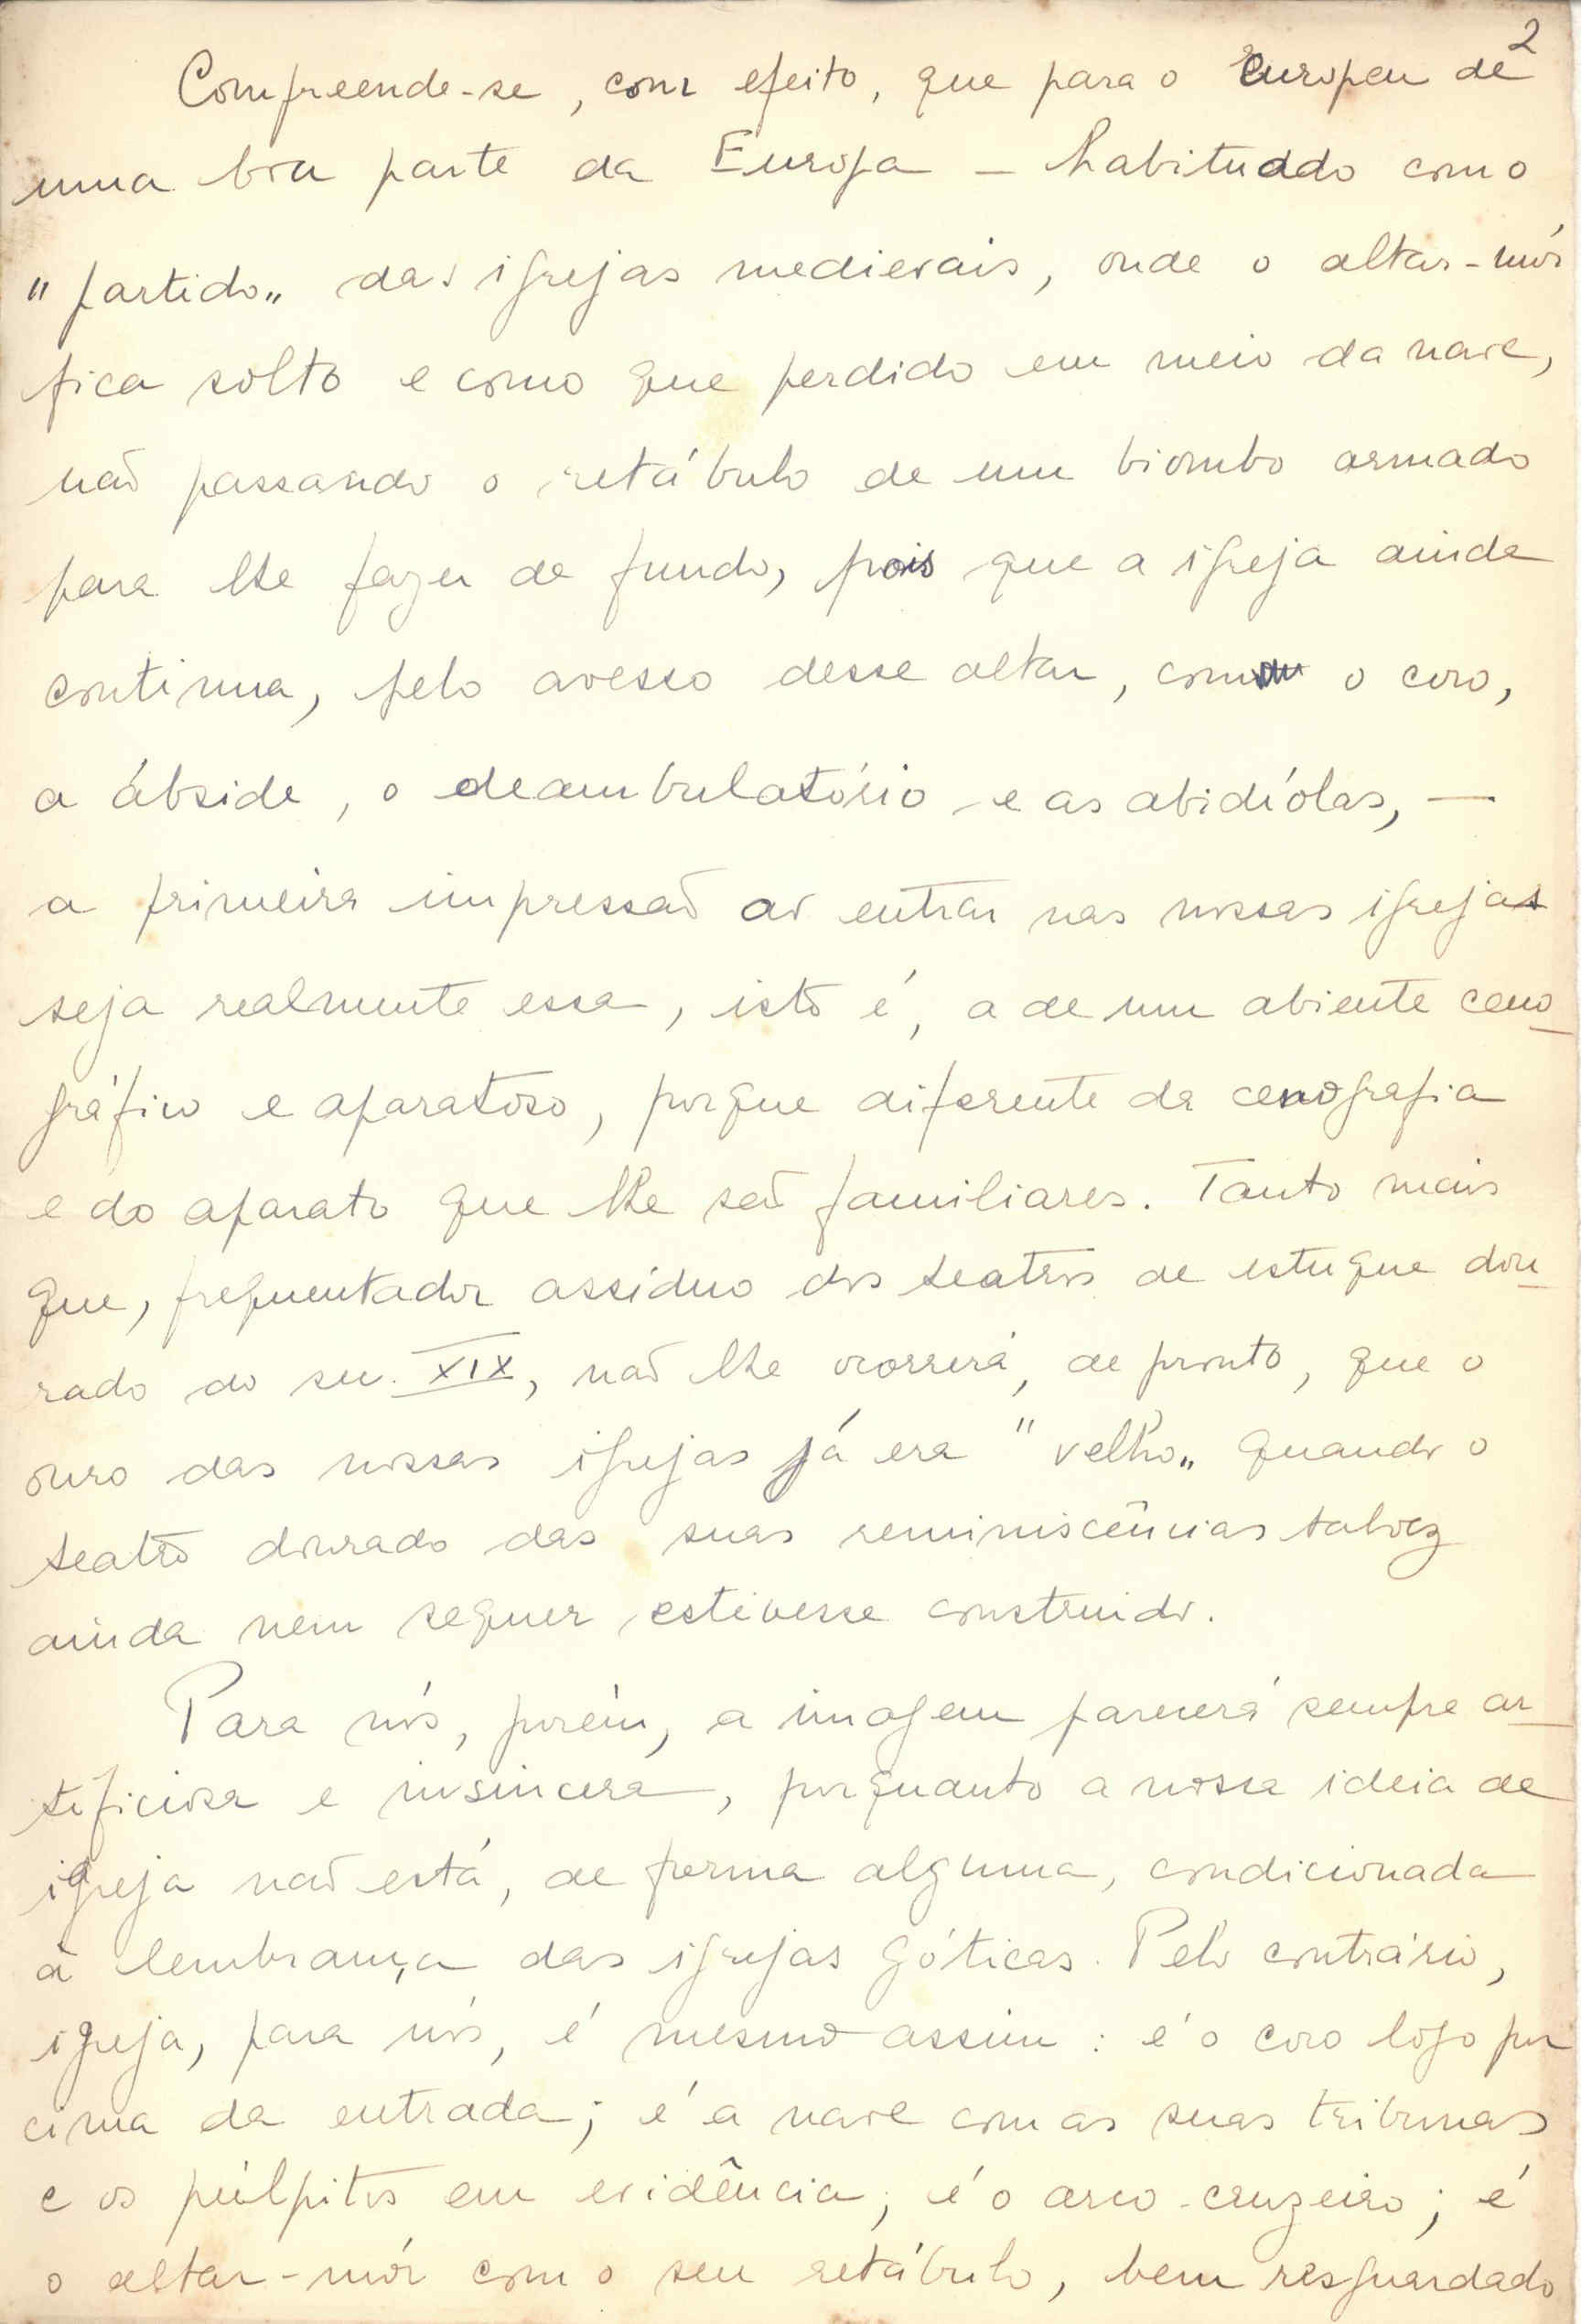 2
Compreende-se, com efeito, que para o Europeu de
uma boa parte da Europa – habituado com o
"partido„ das igrejas medievais, onde o altar-mór
fica solto e como que perdido em meio da nave,
não passando o retábulo de um biombo armado
para lhe fazer de fundo, pois que a igreja ainda
continua, pelo avesso desse altar, com o coro,
a ábside, o deambulatório e as abidíolas, —
a primeira impressão ao entrar nas nossas igrejas
seja realmente essa, isto é, a de um abiente ceno
gráfico e aparatoso, porque diferente da cenografia
e do aparato que lhe são familiares. Tanto mais
que, frequentador assíduo dos teatros de estuque dou
rado do sec. XIX, não lhe ocorrerá, de pronto, que o
ouro das nossas igrejas já era "velho„ quando o
teatro dourado das suas reminiscências talvez
ainda nem sequer estivesse construido.
Para nós, porém, a imagem parecerá sempre ar
tificiosa e insincera, porquanto a nossa ideia de
igreja não está, de forma alguma, condicionada
à lembrança das igrejas góticas. Pelo contrário,
igreja, para nós, é mesmo assim: é o coro logo por
cima da entrada; é a nave com as suas tribunas
e os púlpitos em evidência; é o arco-cruzeiro; é
o altar-mór com o seu retábulo, bem resguardado